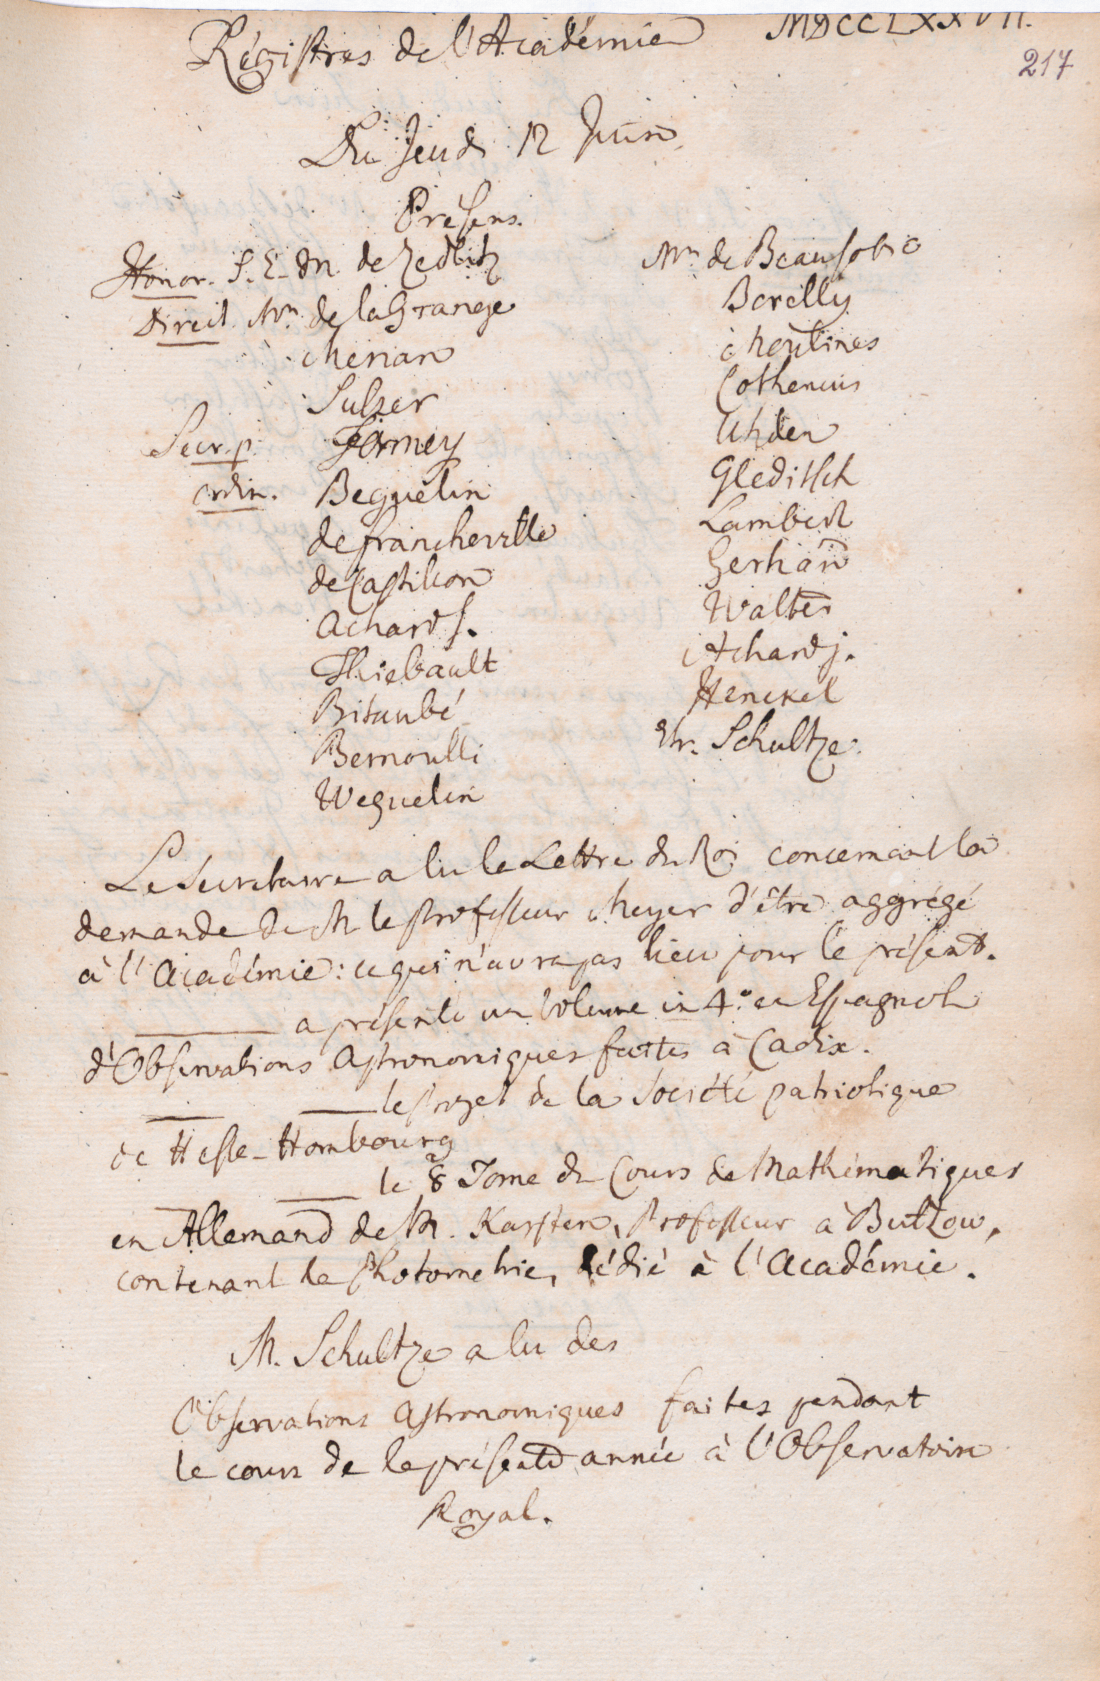 Régistres de l'Académie MDCCLXXVII.
217
Du Jeudi 12 Juin.
Présens.
Honor. S. E. M. de Zedlitz
Direct. Mrs. de la Grange
Merian
Sulzer
Secr. p. Formey
ordin. Beguelin
de Francheville
de Castillon
Achard s.
Thiebault
Bitaubé
Bernoulli
Weguelin
Mrs. de Beausobre
Borelly
Moulines
Cothenius
Uhden
Gleditsch
Lambert
Gerhard
Walter
Achard j.
Henckel
Schultze.
Le Secretaire a lu la Lettre du Roi concernant la
demande de M. le Professeur Meyer d'être aggrégé
à l'Académie: ce qui n'aura pas lieu pour le présent.
——— a présenté un Volume in 4.° en Espagnol
d'Observations Astronomiques faites à Cadix.
—— —— le projet de la Société patriotique
de Hesse-Hombourg
—— le 8 Tome du Cours de Mathématiques
en Allemand de M. Karsten, Professeur à Butzow,
contenant la Photometrie, dédié à l'Académie.
M. Schultze a lu des
Observations Astronomiques faites pendant
le cours de la présente année à l'Observatoire
Royal.